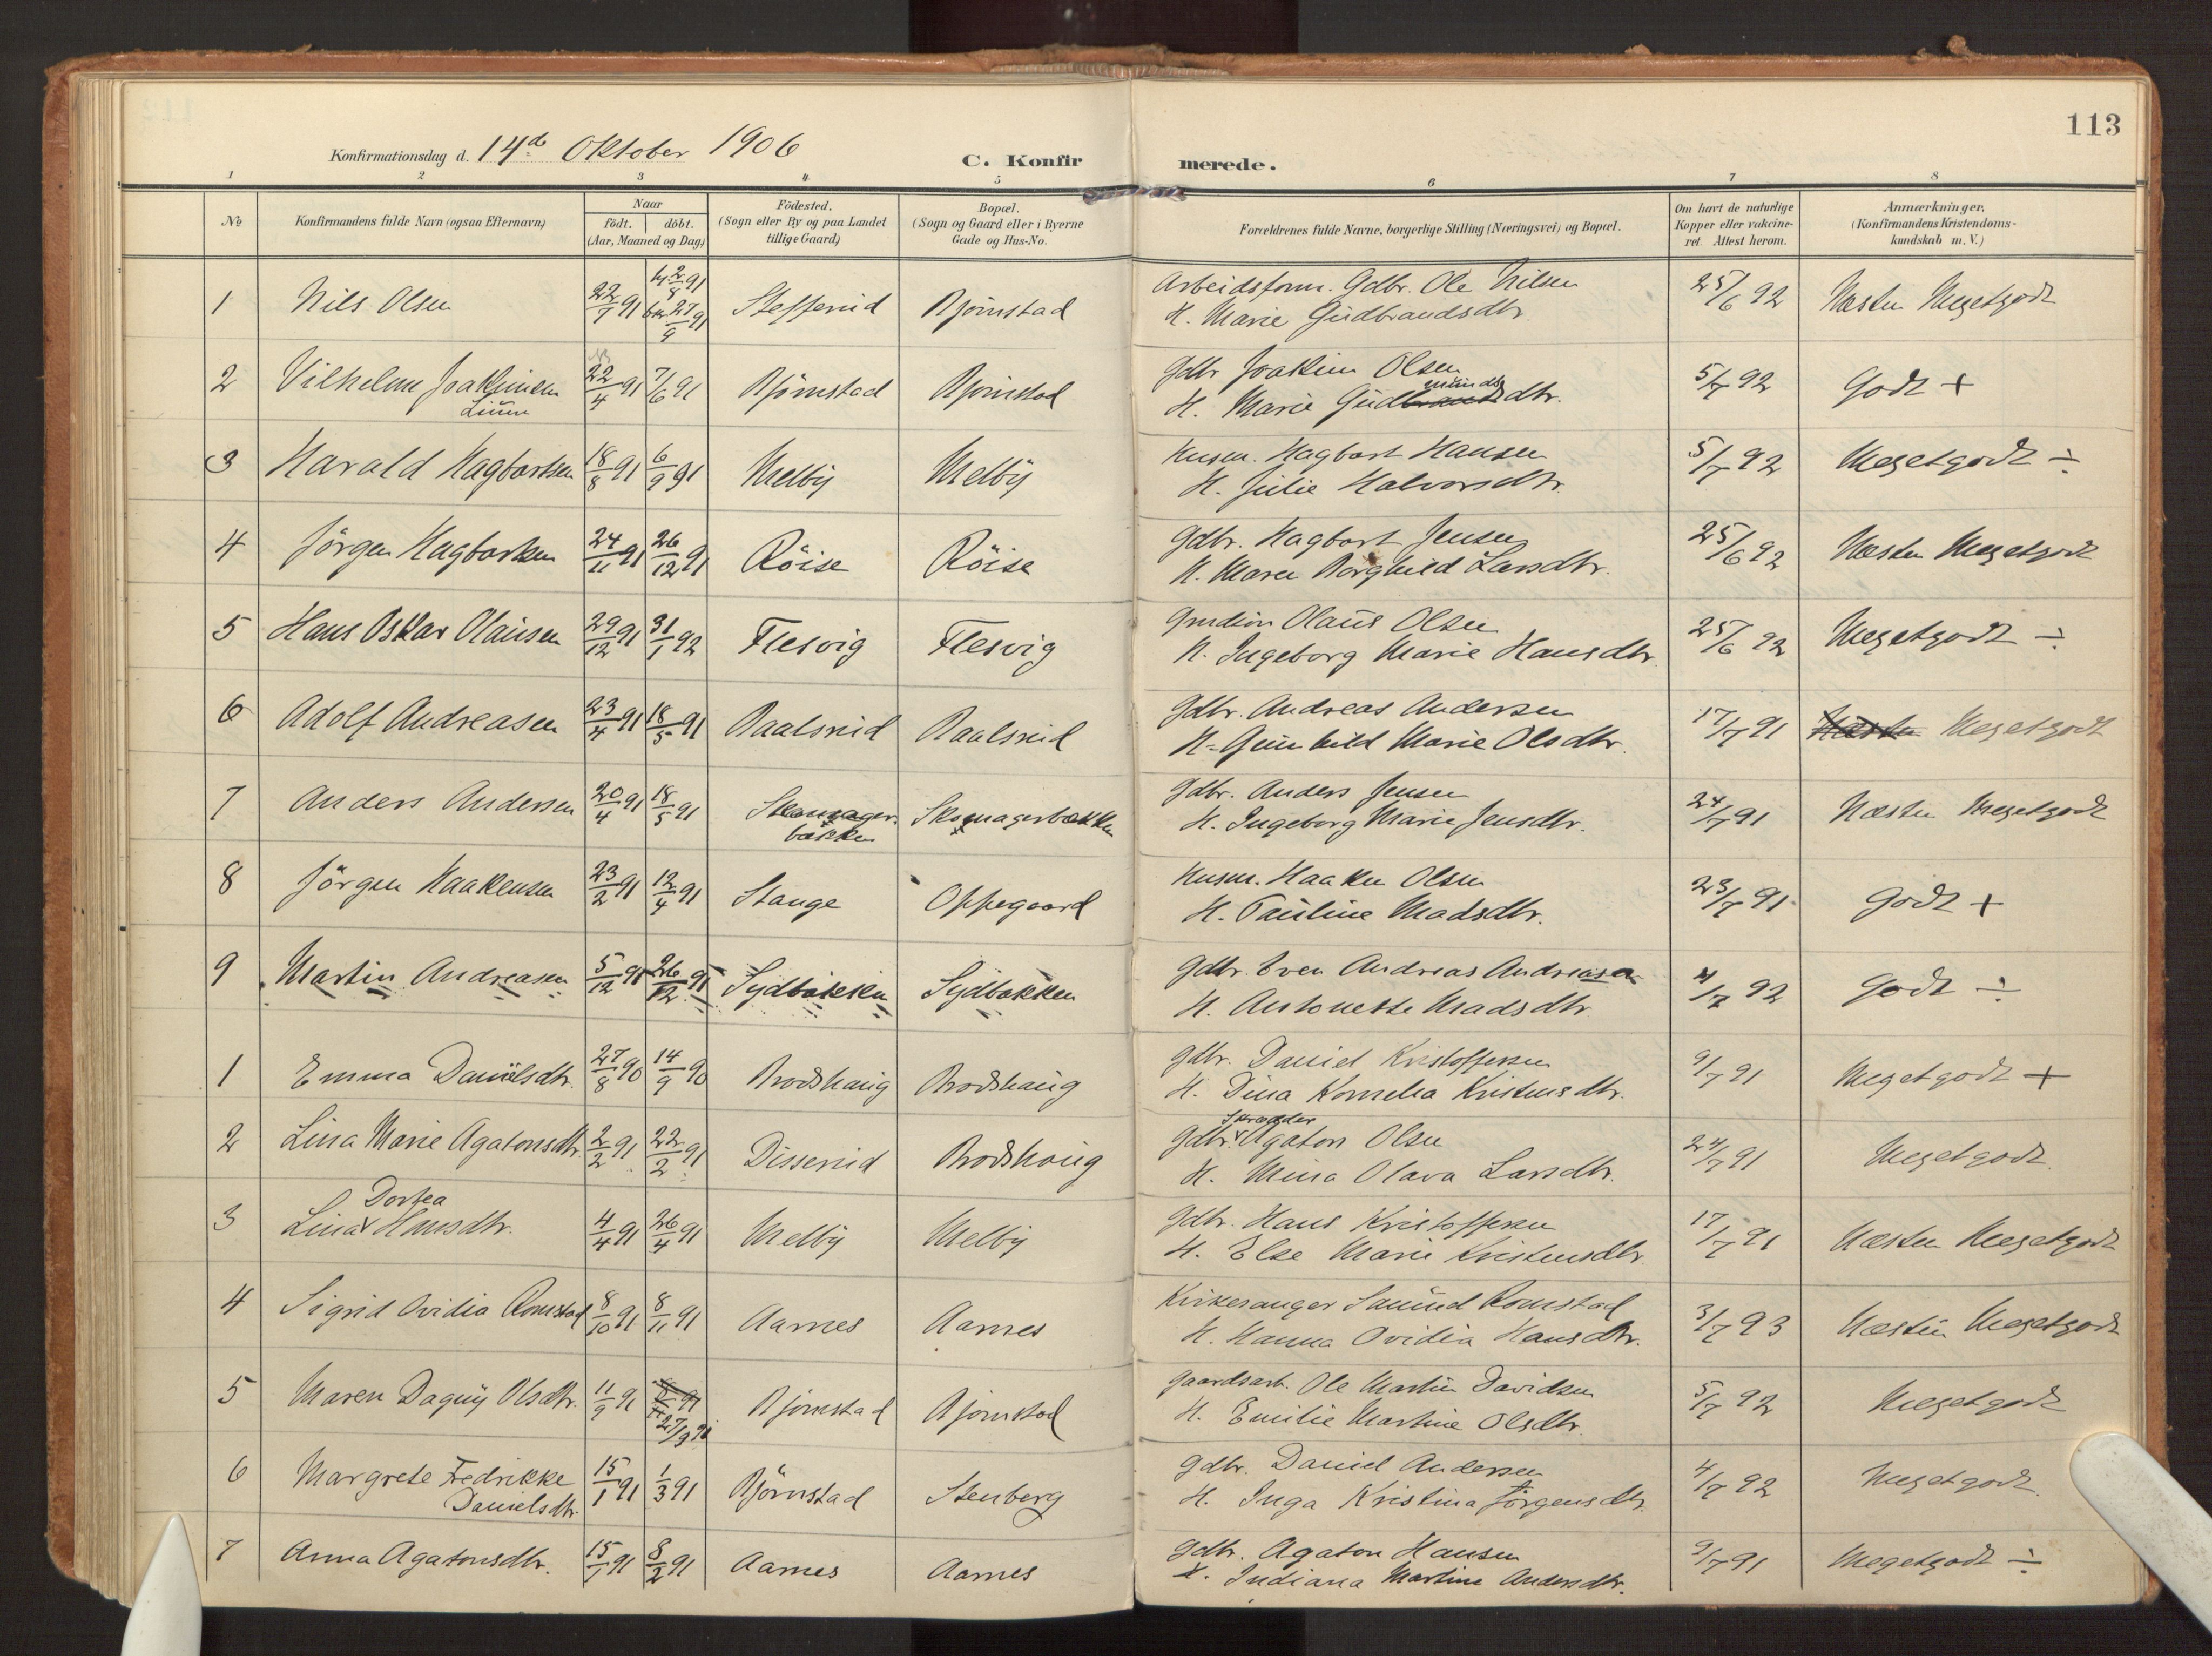 113
Konfirmationsdag d. 14de Oktober 1906
C. Konfirmerede.
1 2 3 4 5 6 7 8
No
Konfirmandens fulde Navn (ogsaa Efternavn)
Naar
født. døbt.
(Aar, Maaned og Dag)
Födested.
(Sogn eller By og paa Landet
tillige Gaard)
Bopæl.
(Sogn og Gaard eller i Byerne
Gade og Hus-No.
Forældrenes fulde Navne, borgerlige Stilling (Næringsvei) og Bopæl.
Om havt de naturlige
Kopper eller vakcine-
ret. Attest herom.
Anmærkninger.
(Konfirmandens Kristendoms-
kundskab m. V.)
1 Nils Olsen 22/7 91 hj. 2/8 91 bkr. 27/9 91 Steffenrud Bjørnstad Arbeidsform. Gdbr. Ole Nilsen
H. Marie Gudbrandsdtr. 25/6 92 Næsten Megetgodt
2 Vilhelm Joakimsen 22/4 91 7/6 91 Bjørnstad Bjørnstad Gdbr Joakim Olsen
H. Marie Gudmundsdtr. 5/7 92 Godt +
3 Harald Hagbartsen 18/8 91 6/9 91 Melby Melby Husm. Hagbart Hansen
H. Julie Halvorsdtr. 5/7 92 Megetgodt ÷
4 Jörgen Hagbartsen 24/11 91 26/12 91 Röise Röise Gdbr. Hagbart Jensen
H. Maren Borghild Larsdtr. 25/6 92 Næsten Megetgodt
5 Hans Oskar Olausen 29/12 91 31/1 92 Flesvig Flesvig Olaus Olsen
H. Ingeborg Marie Hansdtr. 25/6 92 Megetgodt ÷
6 Adolf Andreasen 23/4 91 18/5 91 Baalsrud Baalsrud Gdbr. Andreas Andersen
H. Gunhild Marie Olsdtr. 17/7 91 Næsten Megetgodt
7 Anders Andersen 20/4 91 18/5 91 Skomager-
bækken Skomagerbækken Gdbr. Anders Jensen
H. Ingeborg Marie Jensdtr. 24/7 91 Næsten Megetgodt
8 Jörgen Haakensen 23/2 91 12/4 91 Stange Oppegaard Husm. Haaken Olsen
H. Pauline Madsdtr. 23/7 91 Godt +
9 Martin Andreasen 5/12 91 26/12 91 Sydbakken Sydbakken Gdbr. Even Andreas Andreasen
H. Antonette Madsdtr. 4/7 92 Godt ÷
1 Emma Danielsdtr. 27/8 90 14/9 90 Brodshaug Brodshaug Gdbr. Daniel Kristoffersen
H. Dina Kornelia Kristensdtr. 9/7 91 Megetgodt +
2 Lina Marie Agatonsdtr. 2/2 91 22/2 91 Dissenud Brodshaug Gdbr. Skrædder Agaton Olsen
H. Mina Olava Larsdtr. 24/7 91 Megetgodt
3 Lina Dortea Hansdtr. 4/4 91 26/4 91 Melby Melby Gdbr. Hans Kristoffersen
H. Else Marie Kristensdtr. 17/7 91 Næsten Megetgodt
4 Sigrid Ovidia Romstad 8/10 91 8/11 91 Aarnes Aarnes Kirkesanger Samund Romstad
H. Hanna Ovidia Hansdtr. 3/7 93 Næsten Megetgodt
5 Maren Dagny Olsdtr. 11/9 91 27/9 91 Bjørnstad Bjørnstad Gaardsarb. Ole Martin Davidsen
H. Emilie Martine Olsdtr. 5/7 92 Megetgodt
6 Margrete Fredrikke
Danielsdtr. 15/1 91 1/3 91 Bjørnstad Stenberg Gdbr. Daniel Andersen
H. Inga Kristina Jörgensdtr. 4/7 92 Megetgodt
7 Anna Agatonsdtr. 15/1 91 8/2 91 Aarnes Aarnes Gdbr. Agaton Hansen
H. Indiana Martine Andersdtr. 9/7 91 Megetgodt ÷